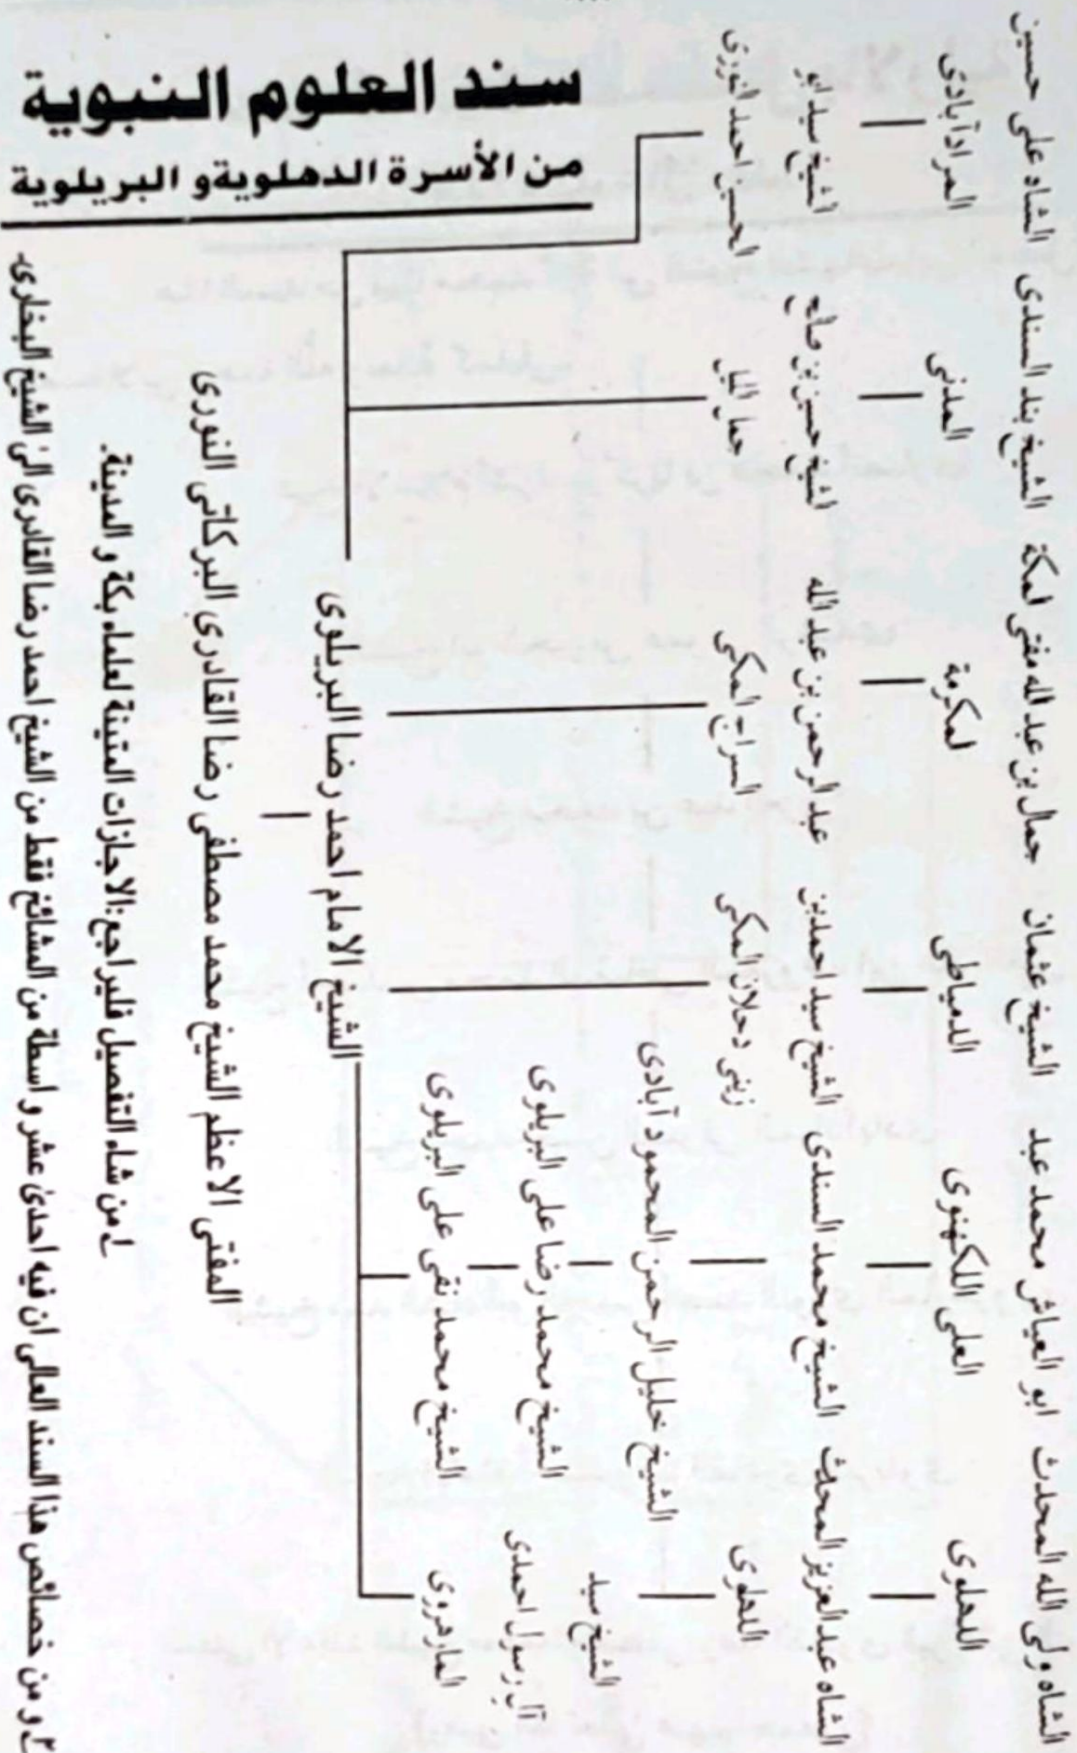 سند العلوم النبوية
من الأسرة الدهلوية و البريلوية
الشاه ولی الله المحدث
الدهلوی
ابو العیاش محمد عبد
العلی اللکھنوی
الشیخ عثمان
الدمیاطی
جمال بن عبد الله مفتی لمکة
لمکرمة
الشیخ بند السندی
المدنی
الشاه علی حسین
المرادآبادی
الشاه عبدالعزیز المحدث
الدهلوی
الشیخ محمد السندی
الشیخ سید احمد بن
زینی دحلان المکی
عبد الرحمن بن عبد الله
السراج المکی
الشیخ حسین بن صالح
جمال اللیل
الشیخ سید ابو
الحسین احمد النوری
الشیخ خلیل الرحمن المحمود آبادی
الشیخ سید
آل رسول احمدی
المارهروی
الشیخ محمد رضا علی البریلوی
الشیخ محمد نقی علی البریلوی
الشیخ الامام احمد رضا البریلوی
المفتی الاعظم الشیخ محمد مصطفی رضا القادری البرکاتی النوری
۱ من شاء التفصیل فلیراجع: الاجازات المتینة لعلماء بکة و المدینة.
۲ و من خصائص هذا السند العالی ان فیه احدی عشر واسطة من المشائخ فقط من الشیخ احمد رضا القادری الی الشیخ البخاری.